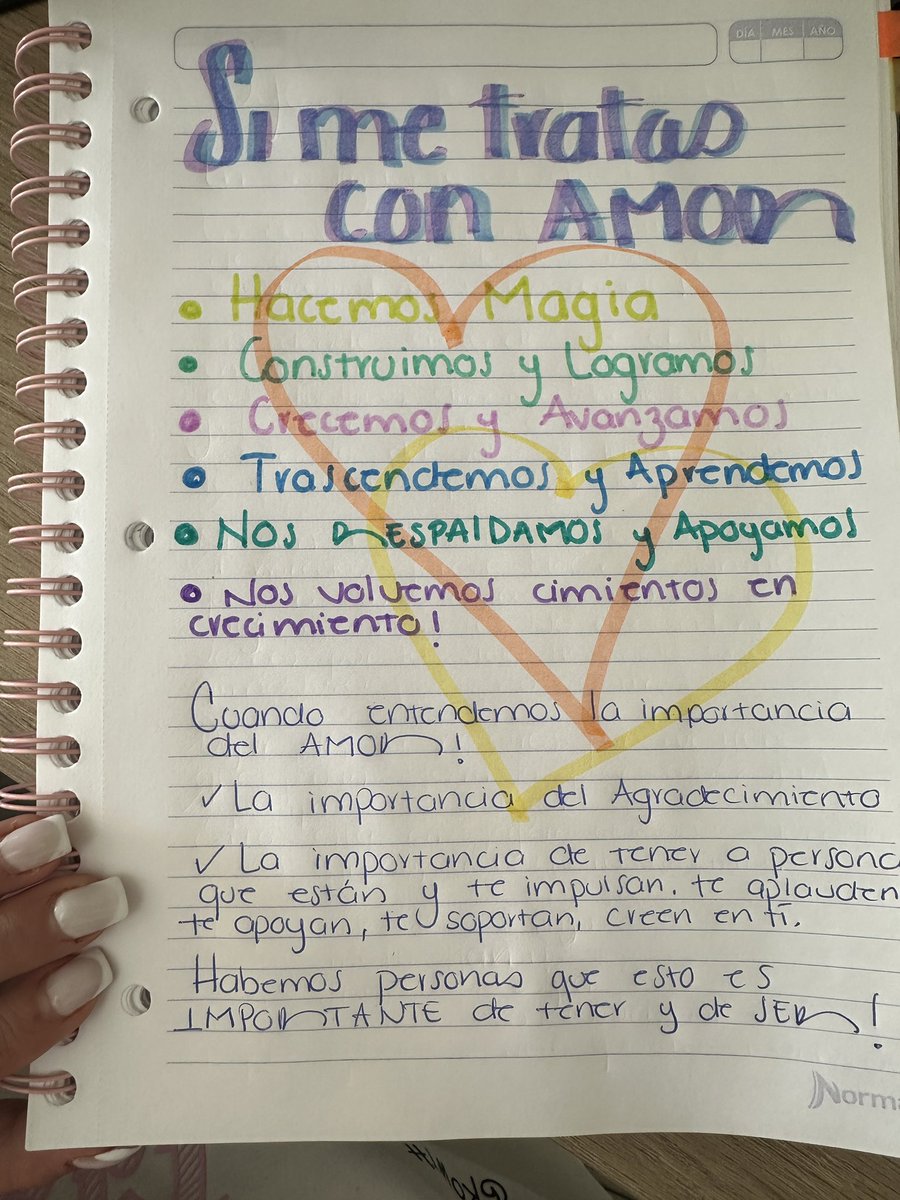 DÍA MES AÑO
Si me tratas
con AMOR
• Hacemos Magia
• Construimos y Logramos
• Crecemos y Avanzamos
• Trascendemos y Aprendemos
• Nos RESPALDAMOS y Apoyamos
• Nos volvemos cimientos en
crecimiento!
Cuando entendemos la importancia
del AMOR!
✓ La importancia del Agradecimiento
✓ La importancia de tener a persona
que están y te impulsan. te aplauden
te apoyan, te soportan, creen en tí.
Habemos personas que esto es
IMPORTANTE de tener y de SER!
Norma